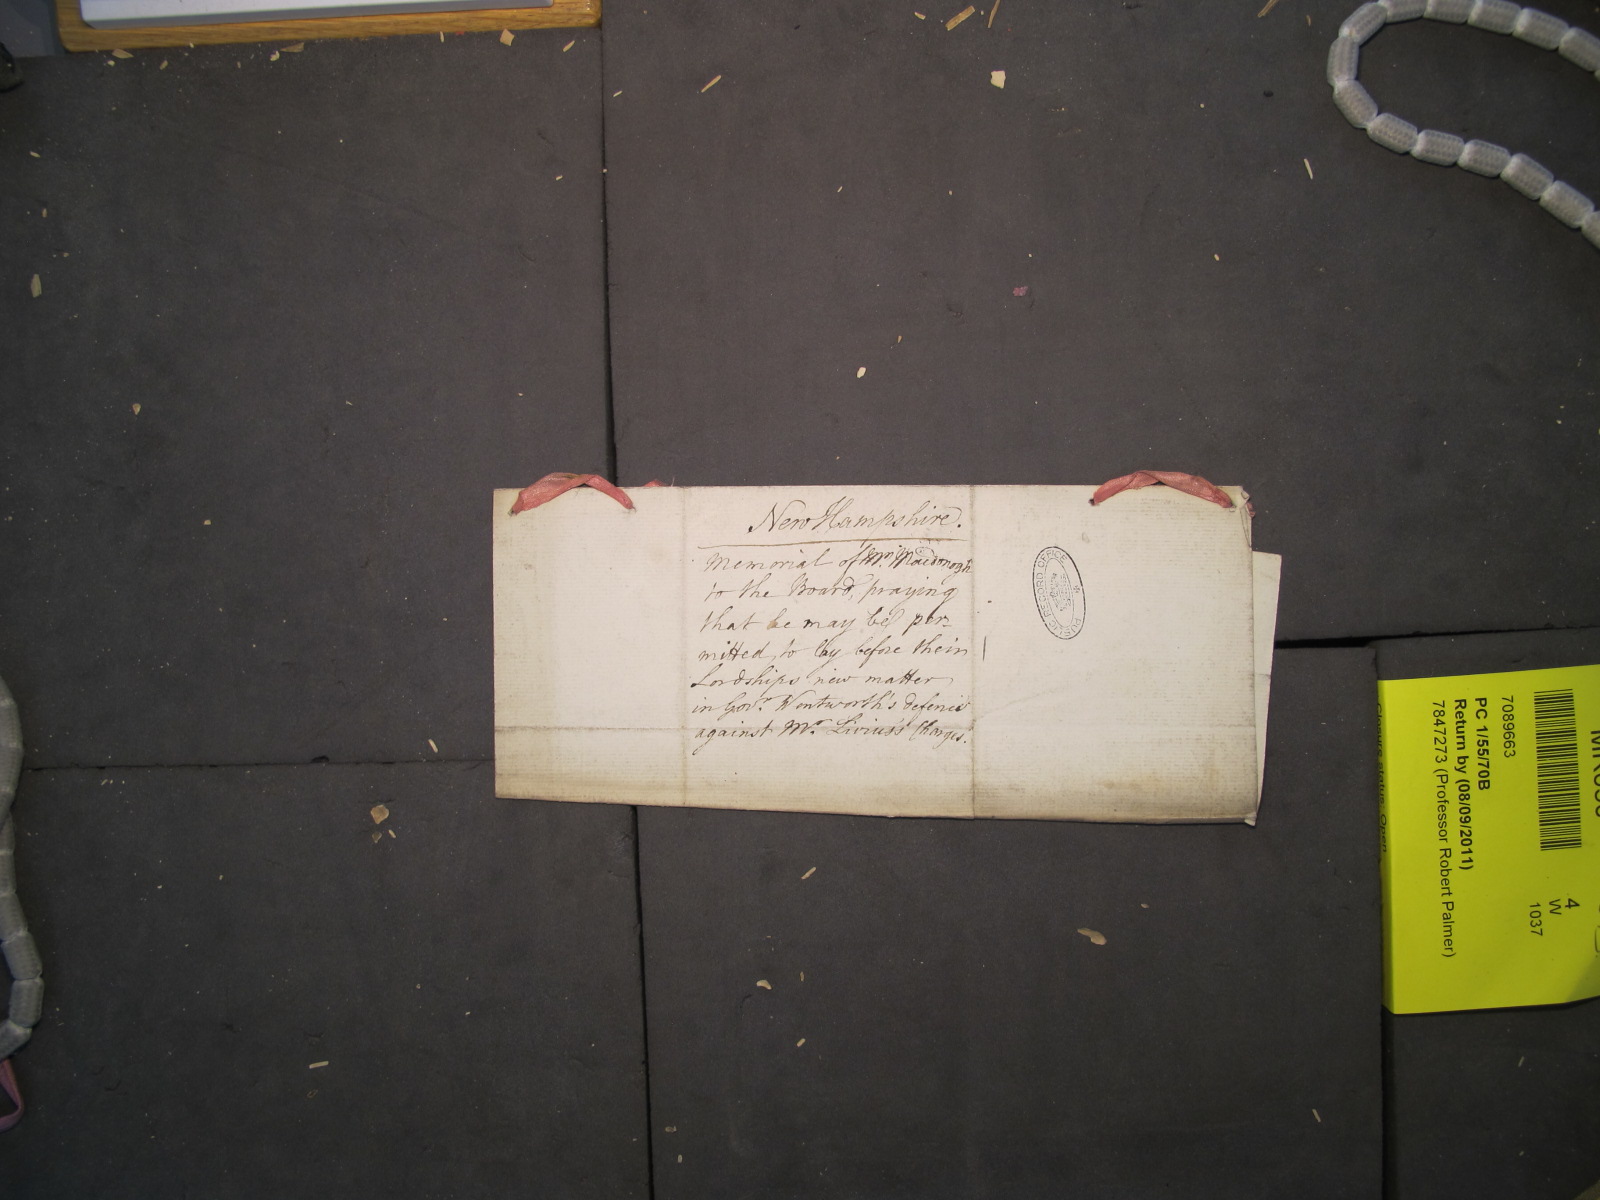 New Hampshire.
Memorial of Mr. Macdonogh
to the Board, praying
that he may be per-
mitted to lay before their
Lordships new matter
in Govr. Wentworth's defence
against Mr. Livius's Charges.
PUBLIC RECORD OFFICE
7089663
PC 1/55/70B
Return by (08/09/2011)
7847273 (Professor Robert Palmer)
4
W
1037
Closure status: Open